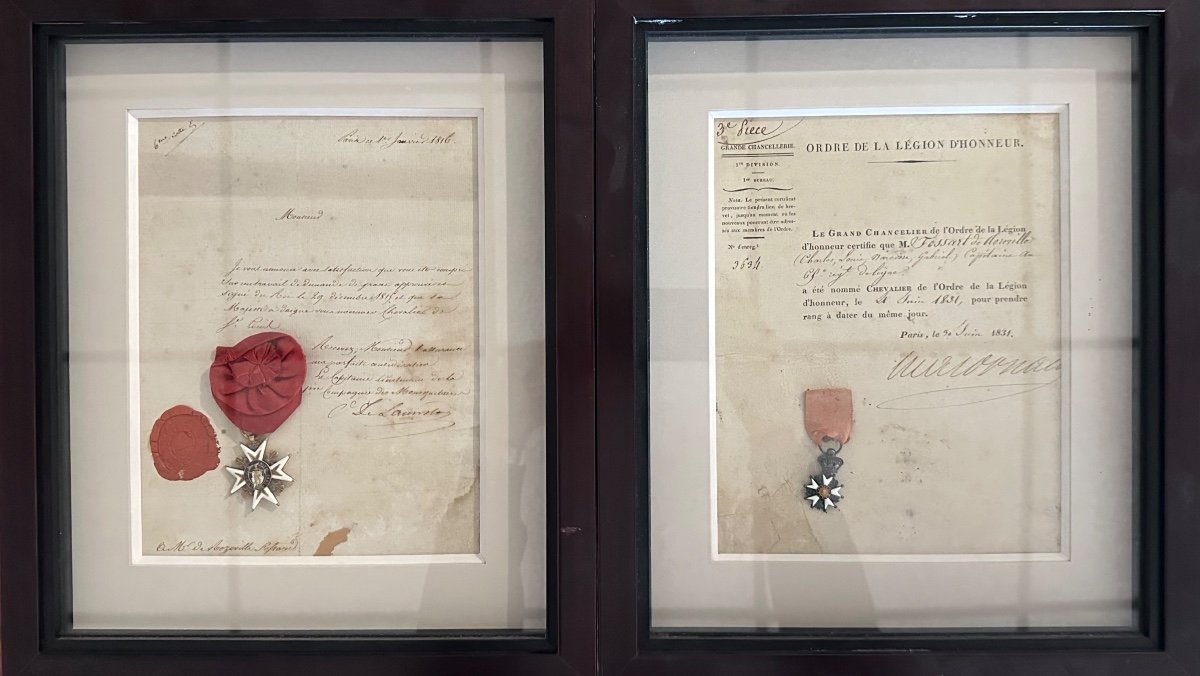 Paris ce 1er Janvier 1816.
Monsieur
Je vous annonce avec satisfaction que vous été compris
Sur un travail de demande de grace approuvé et
signé du Roi le 29 décembre 1815 et que sa
Majesté a daigné vous nommer Chevalier de
St. Louis
Recevez Monsieur l'assurance
ma parfaite considération
Le Capitaine Lieutenant de la
1ère Compagnie des Mousquetaires
A Mr. de Rozeville
3e Pièce
GRANDE CHANCELLERIE.
1re DIVISION.
1er BUREAU.
Nota. Le présent certificat
provisoire tiendra lieu de bre-
vet, jusqu'au moment où les
nouveaux pourront être adres-
sés aux membres de l'Ordre.
N° d'enreg.t
3634.
ORDRE DE LA LÉGION D'HONNEUR.
LE GRAND CHANCELIER de l'Ordre de la Légion
d'honneur certifie que M. Fossart de Rozeville
(Charles, Louis, Narcisse, Gabriel) Capitaine au
régt. de ligne
a été nommé CHEVALIER de l'Ordre de la Légion
d'honneur, le 21 Juin 1831, pour prendre
rang à dater du même jour.
Paris, le 30 Juin 1831.